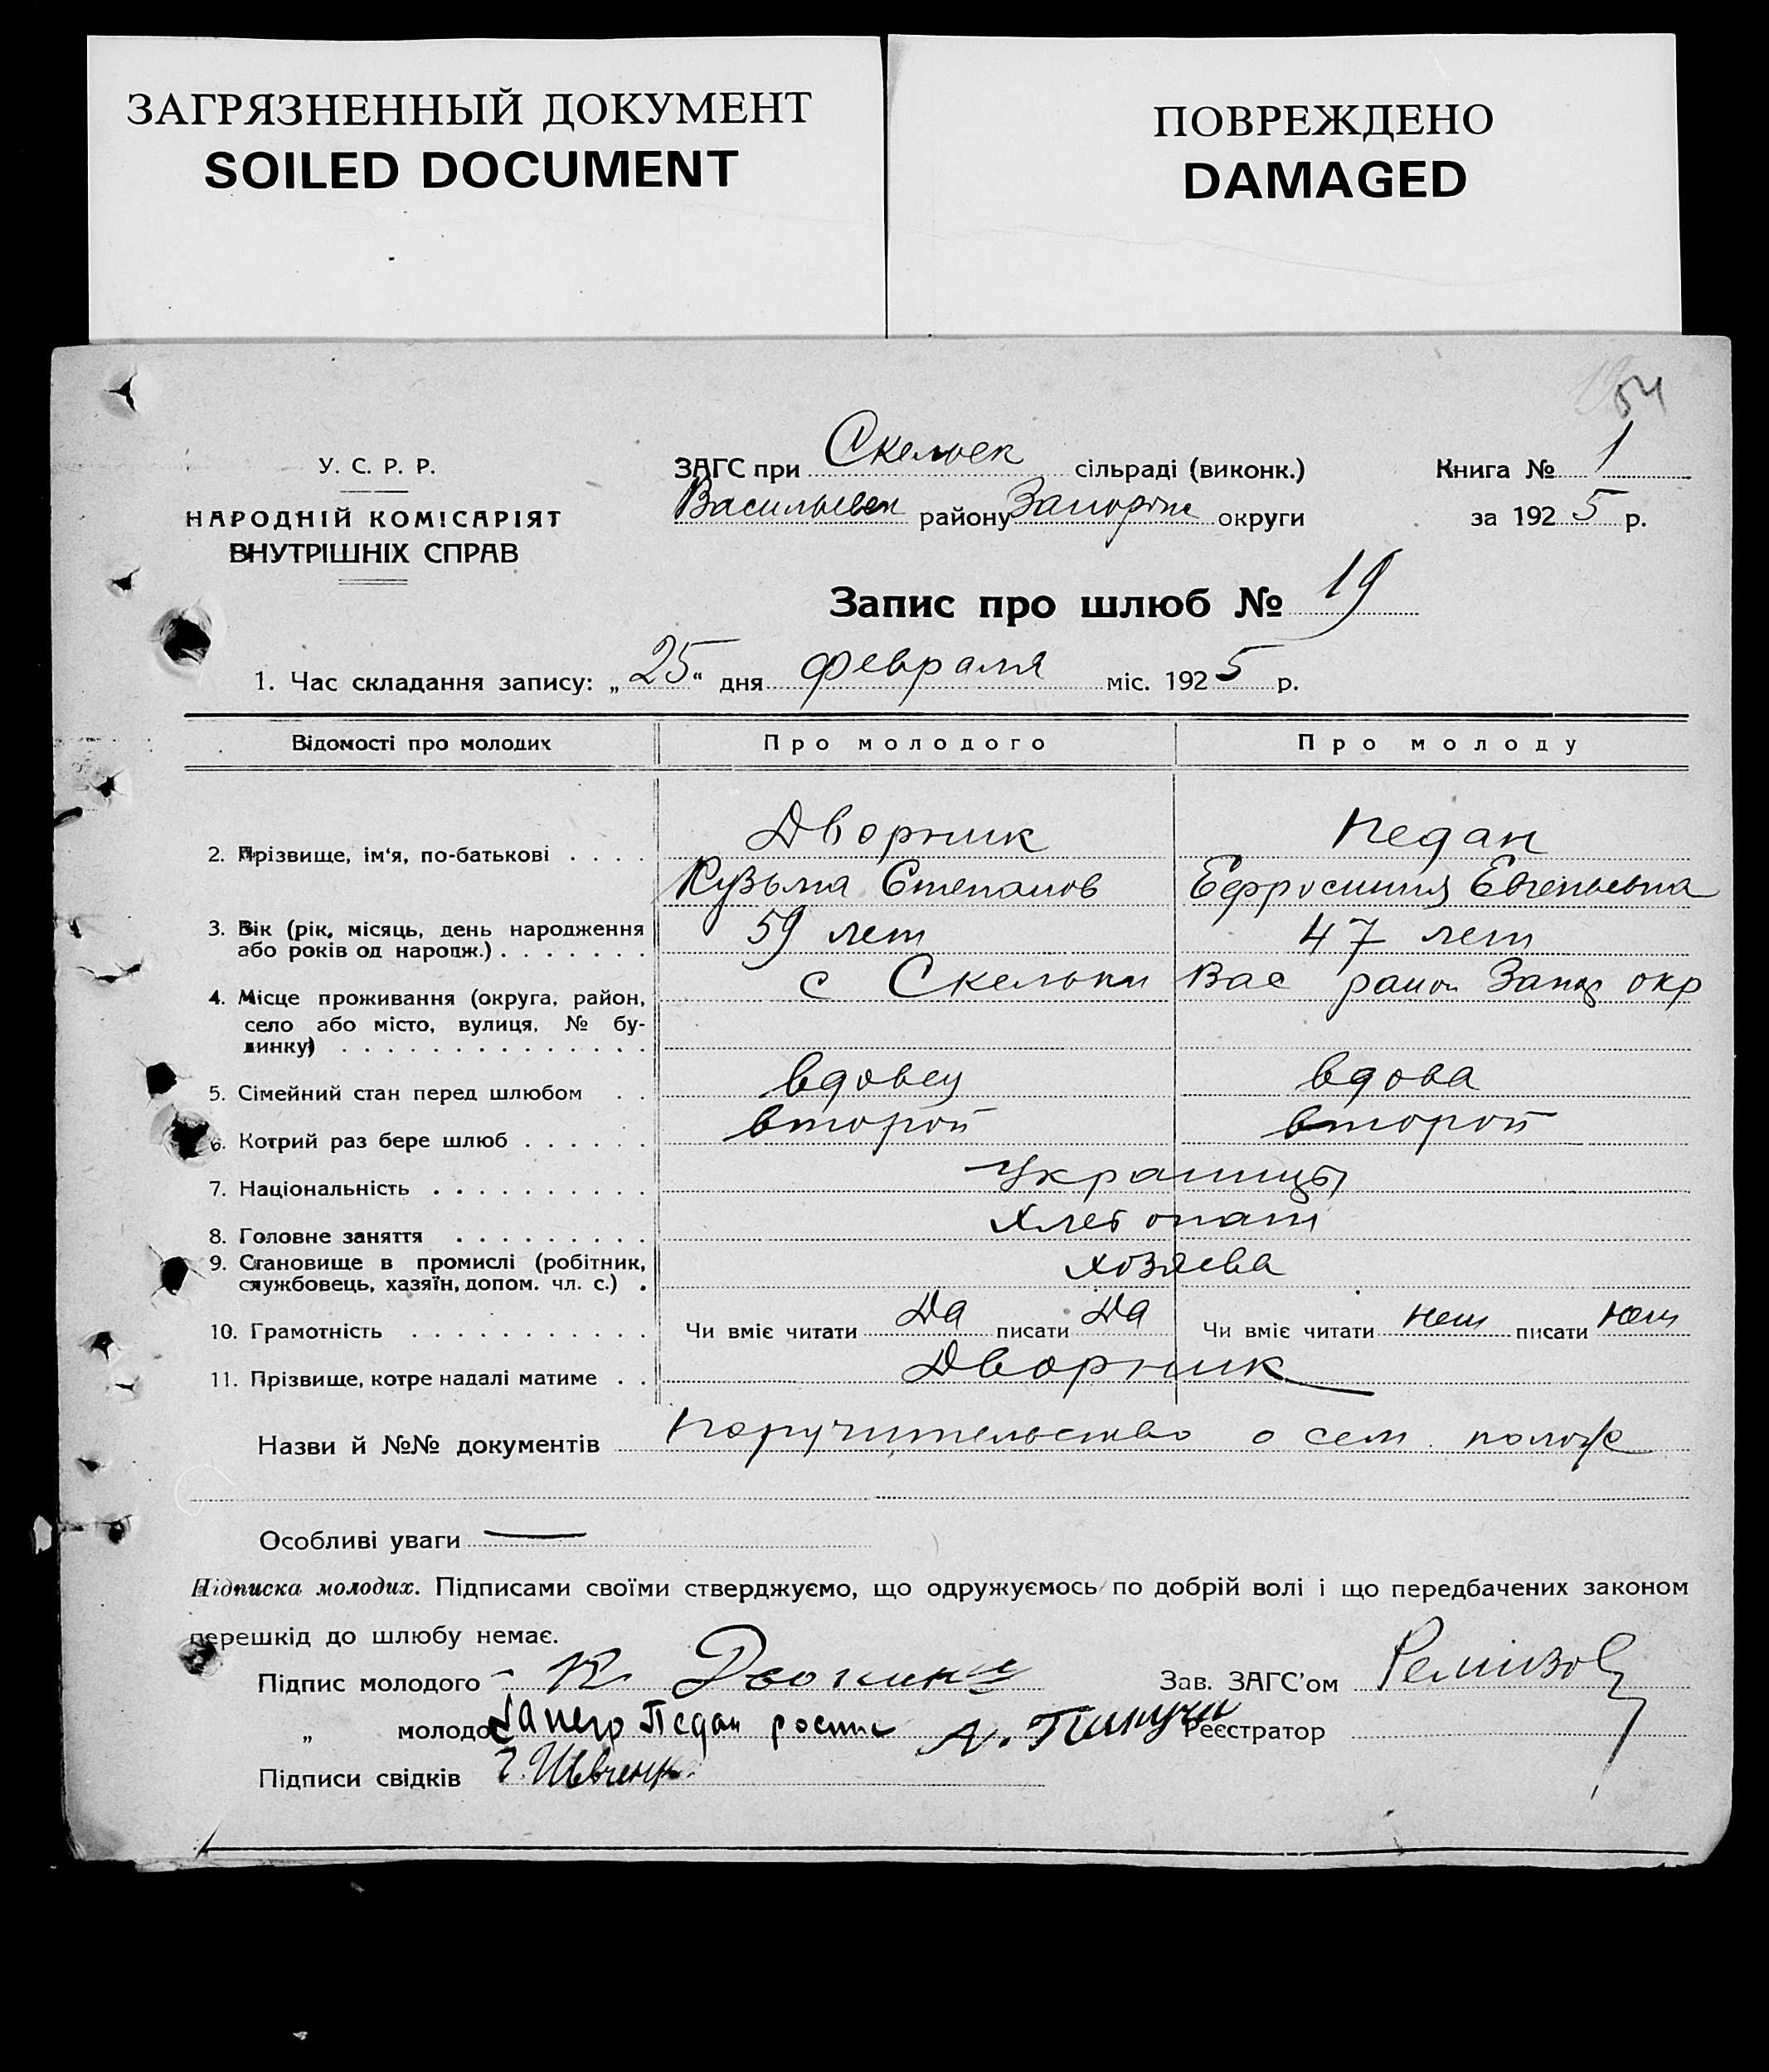 ЗАГРЯЗНЕННЫЙ ДОКУМЕНТ
SOILED DOCUMENT
ПОВРЕЖДЕНО
DAMAGED
54
У. С. Р. Р.
НАРОДНІЙ КОМІСАРІЯТ
ВНУТРІШНІХ СПРАВ
ЗАГС при Скельек сільраді (виконк.)
Васильевск району Запоріж округи
Книга № 1
за 1925 р.
Запис про шлюб № 19
1. Час складання запису: „25“ дня февраля міс. 1925 р.
Відомості про молодих Про молодого Про молоду
2. Прізвище, ім'я, по-батькові . . . . Дворник Педан
Кузьма Степанов Ефросиния Евгеньевна
3. Вік (рік, місяць, день народження
або років од народж.) . . . . . . . 59 лет 47 лет
4. Місце проживання (округа, район, с Скельки Вас район Запор окр
село або місто, вулиця, № бу-
динку) . . . . . . . . . . . . . .
5. Сімейний стан перед шлюбом . . вдовец вдова
6. Котрий раз бере шлюб . . . . . . второй второй
7. Національність . . . . . . . . . . Украинцы
8. Головне заняття . . . . . . . . . Хлебопаш
9. Становище в промислі (робітник,
службовець, хазяїн, допом. чл. с.) . хозяева
10. Грамотність . . . . . . . . . . . Чи вміє читати Да писати Да Чи вміє читати нет писати нет
11. Прізвище, котре надалі матиме . . Дворник
Назви й №№ документів поручительство о сем. полож
Особливі уваги —
Підписка молодих. Підписами своїми стверджуємо, що одружуємось по добрій волі і що передбачених законом
перешкід до шлюбу немає.
Підпис молодого К Зав. ЗАГС'ом Ремизов
„ молодої Педан Реєстратор
Підписи свідків Г. Шевченк